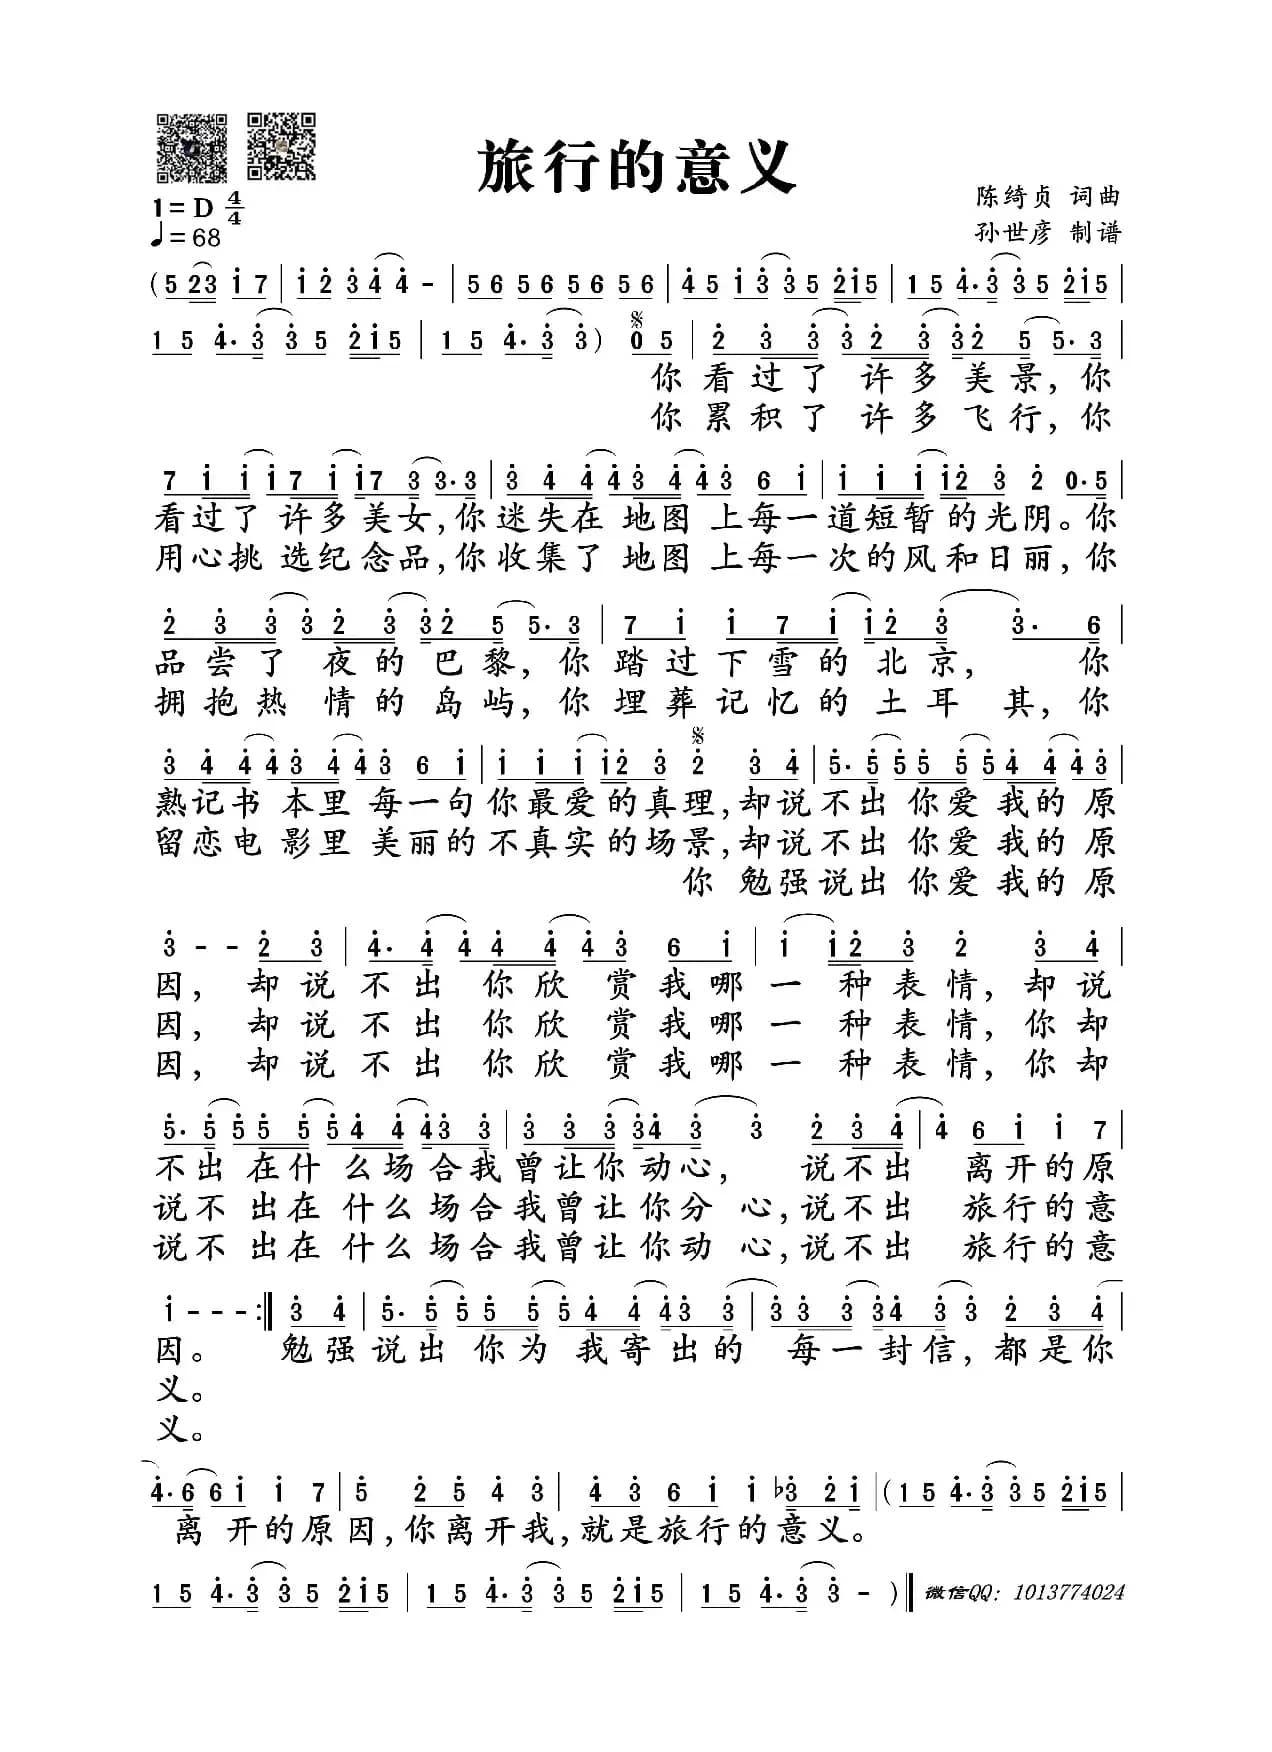 旅行的意义
1=D 4/4
陈绮贞 词曲
♩=68
孙世彦 制谱
(5 23 1 7 | 1 2 3 4 4 - | 56 56 56 56 | 45 13 35 215 | 15 4·3 35 215 |
15 4·3 35 215 | 15 4·3 3) 05 | 2 3 3 32 3 32 5 5·3 |
你看过了 许多美景,你
你累积了 许多飞行,你
7 1 1 17 1 17 3 3·3 | 3 4 4 43 4 43 6 1 | 1 1 1 12 3 2 0·5 |
看过了 许多美女,你迷失在 地图 上每一道短暂的光阴。你
用心挑 选纪念品,你收集了 地图 上每一次的风和日丽,你
2 3 3 32 3 32 5 5·3 | 7 1 1 7 1 12 3 3· 6 |
品尝了 夜的巴黎,你踏过下雪的北京, 你
拥抱热 情的岛屿,你埋葬记忆的土耳 其,你
3 4 4 43 4 43 6 1 | 1 1 1 12 3 2 3 4 | 5·5 55 5 54 4 43 |
熟记书 本里 每一句你最爱的真理,却说不出 你爱 我的 原
留恋电 影里 美丽的不真实的场景,却说不出 你爱 我的 原
你 勉强说出 你爱 我的 原
3 - - 2 3 | 4·4 44 4 43 6 1 | 1 12 3 2 3 4 |
因, 却说不出 你欣 赏我哪一 种表情,却说
因, 却说不出 你欣 赏我哪一 种表情,你却
因, 却说不出 你欣 赏我哪一 种表情,你却
5·5 55 5 54 4 43 3 | 3 3 3 34 3 3 2 3 4 | 4 6 1 1 7 |
不出 在什 么场 合我曾让你动心, 说不出 离开的原
说不 出在 什么场合我曾让你分 心,说不出 旅行的意
说不 出在 什么场合我曾让你动 心,说不出 旅行的意
1 - - - :‖ 3 4 | 5·5 55 5 54 4 43 3 | 3 3 3 34 3 3 2 3 4 |
因。 勉强说出 你为 我寄出的 每一封信,都是你
义。
义。
4·6 6 1 1 7 | 5 2 5 4 3 | 4 3 6 1 1 ♭3 2 1 | (15 4·3 35 215 |
离 开的原因,你离开我,就是旅行的意义。
15 4·3 35 215 | 15 4·3 35 215 | 15 4·3 3 - )‖ 微信QQ: 1013774024